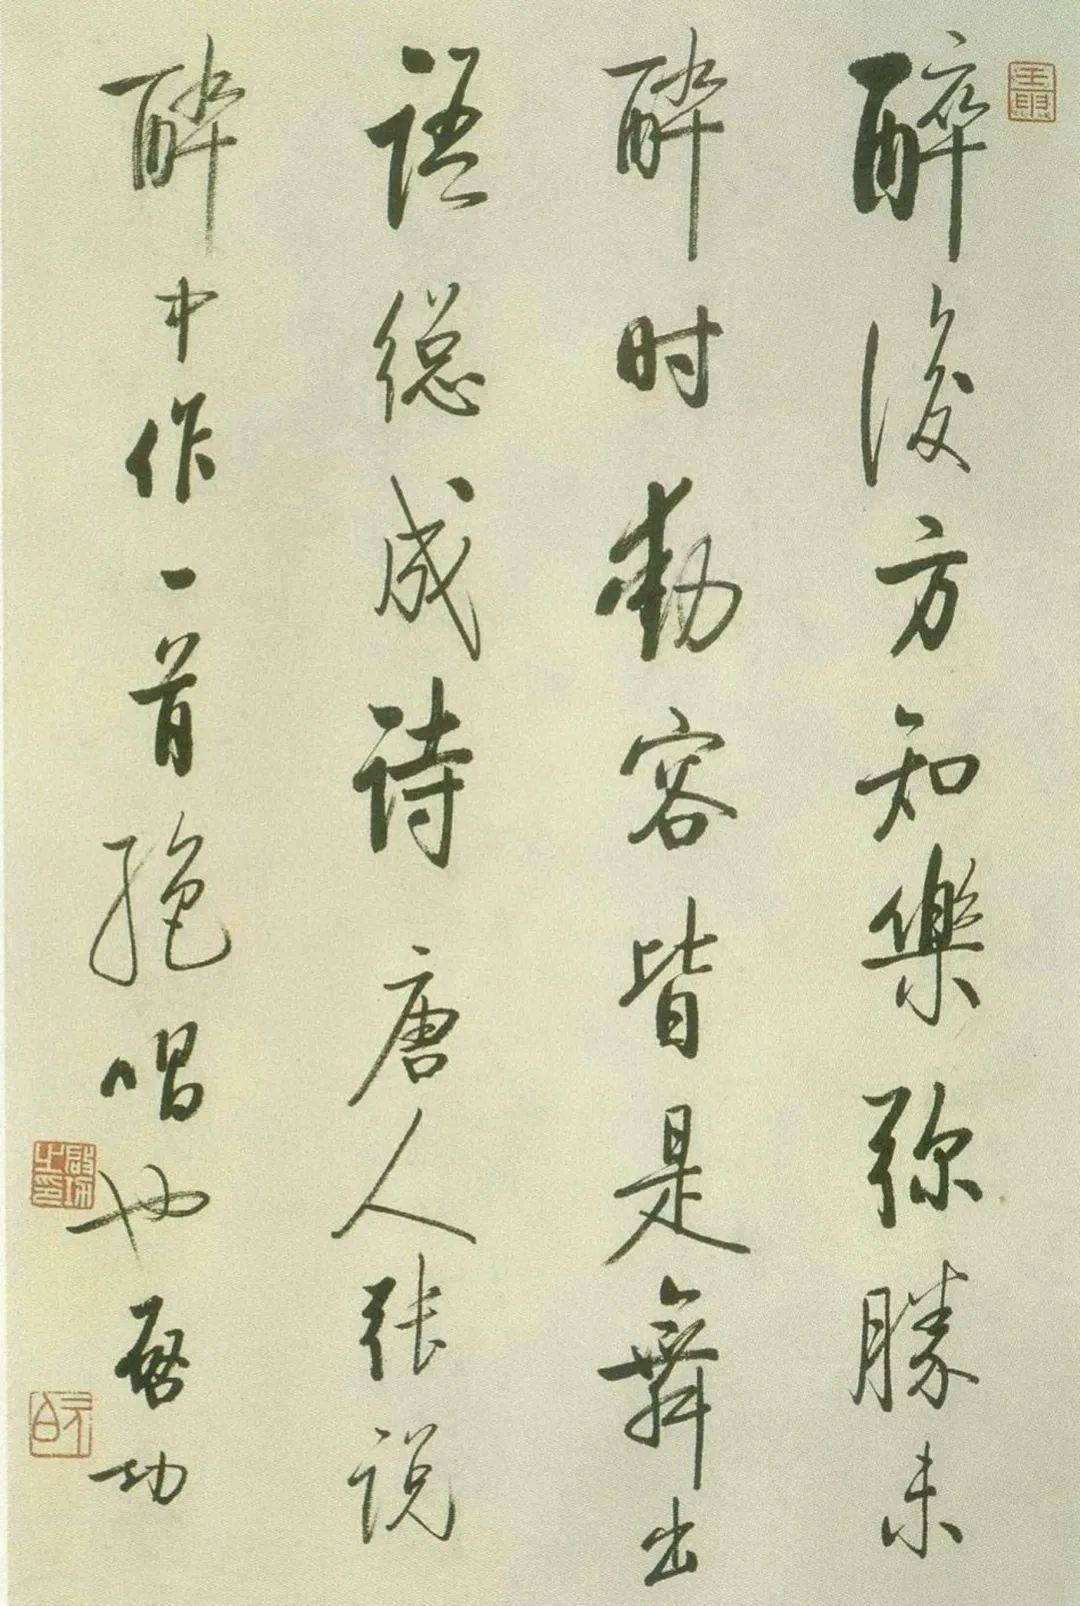 醉後方知樂弥勝未
醉时動容皆是舞出
语總成诗唐人张说
醉中作一首絶唱也启功